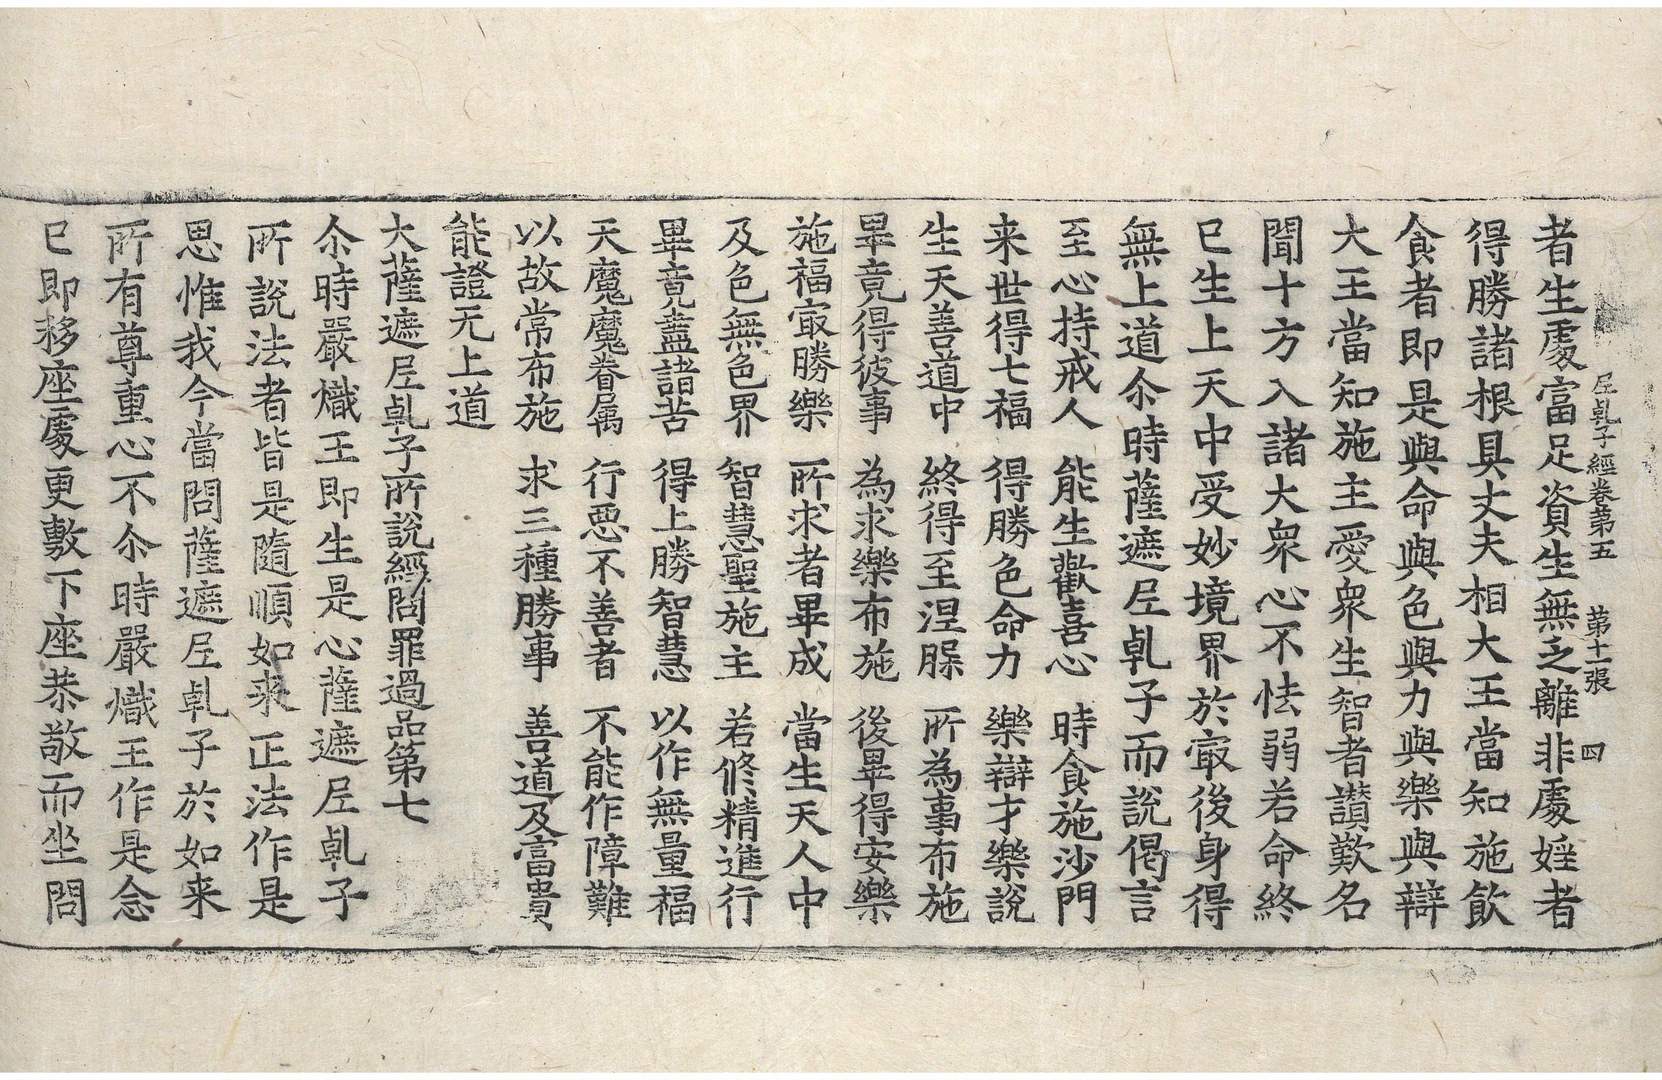 者生處富足資生無乏離非處婬者
𡰱乹子經卷第五　第十一張　四
得勝諸根具丈夫相大王當知施飲
食者即是與命與色與力與樂與辯
大王當知施主愛衆生智者讃歎名
聞十方入諸大衆心不怯弱若命終
已生上天中受妙境界於㝡後身得
無上道尒時薩遮𡰱乹子而說偈言
至心持戒人　能生歡喜心　時食施沙門
来世得七福　得勝色命力　樂辯才樂說
生天善道中　終得至涅槃　所為事布施
畢竟得彼事　為求樂布施　後畢得安樂
施福㝡勝樂　所求者畢成　當生天人中
及色無色界　智慧聖施主　若修精進行
畢竟盡諸苦　得上勝智慧　以作無量福
天魔魔眷属　行惡不善者　不能作障難
以故常布施　求三種勝事　善道及富貴
能證无上道
大薩遮𡰱乹子所說經問罪過品第七
尒時嚴熾王即生是心薩遮𡰱乹子
所說法者皆是隨順如来正法作是
思惟我今當問薩遮𡰱乹子於如来
所有尊重心不尒時嚴熾王作是念
已即移座處更敷下座恭敬而坐問